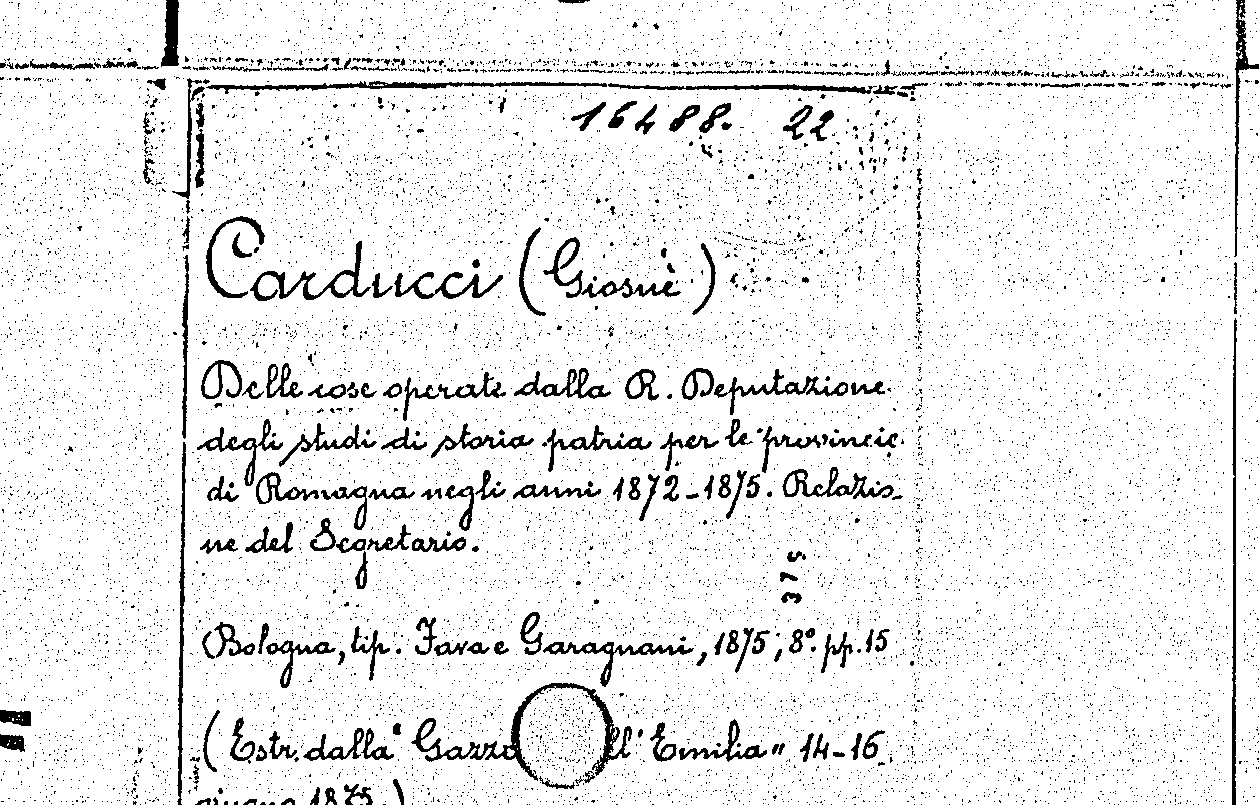 16488. 22
Carducci (Giosuè)
Delle cose operate dalla R. Deputazione
degli studi di storia patria per le provincie
di Romagna negli anni 1872-1875. Relazio-
ne del Segretario.
375
Bologna, tip. Fava e Garagnani, 1875; 8°. pp. 15
(Estr. dalla "Gazz ll'Emilia" 14-16
giugno 1875.)